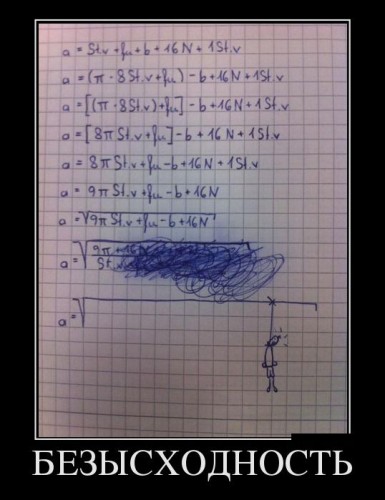 a = St.v + fu + b + 16 N + 1 St.v
a = (π · 8 St.v + fu) - b + 16 N + 1 St.v
a = [(π · 8 St.v) + fu] - b + 16 N + 1 St.v
a = [8π St.v + fu] - b + 16 N + 1 St.v
a = 8π St.v + fu - b + 16 N + 1 St.v
a = 9π St.v + fu - b + 16 N
a = √9π St.v + fu - b + 16 N
a = √9π + 16
St.v
a = √
БЕЗЫСХОДНОСТЬ